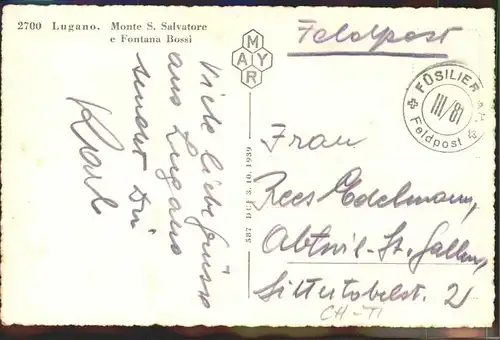 2700 Lugano. Monte S. Salvatore
e Fontana Bossi
MAYR
Feldpost
FÜSILIER
III/81
Feldpost
587 DCF 3.10.1939
Viele liebe Grüsse
aus Lugano
sendet Dir
Karl
Frau
Rees Edelmann,
Abtwil-St. Gallen,
Sittertobelst. 2
CH-TI